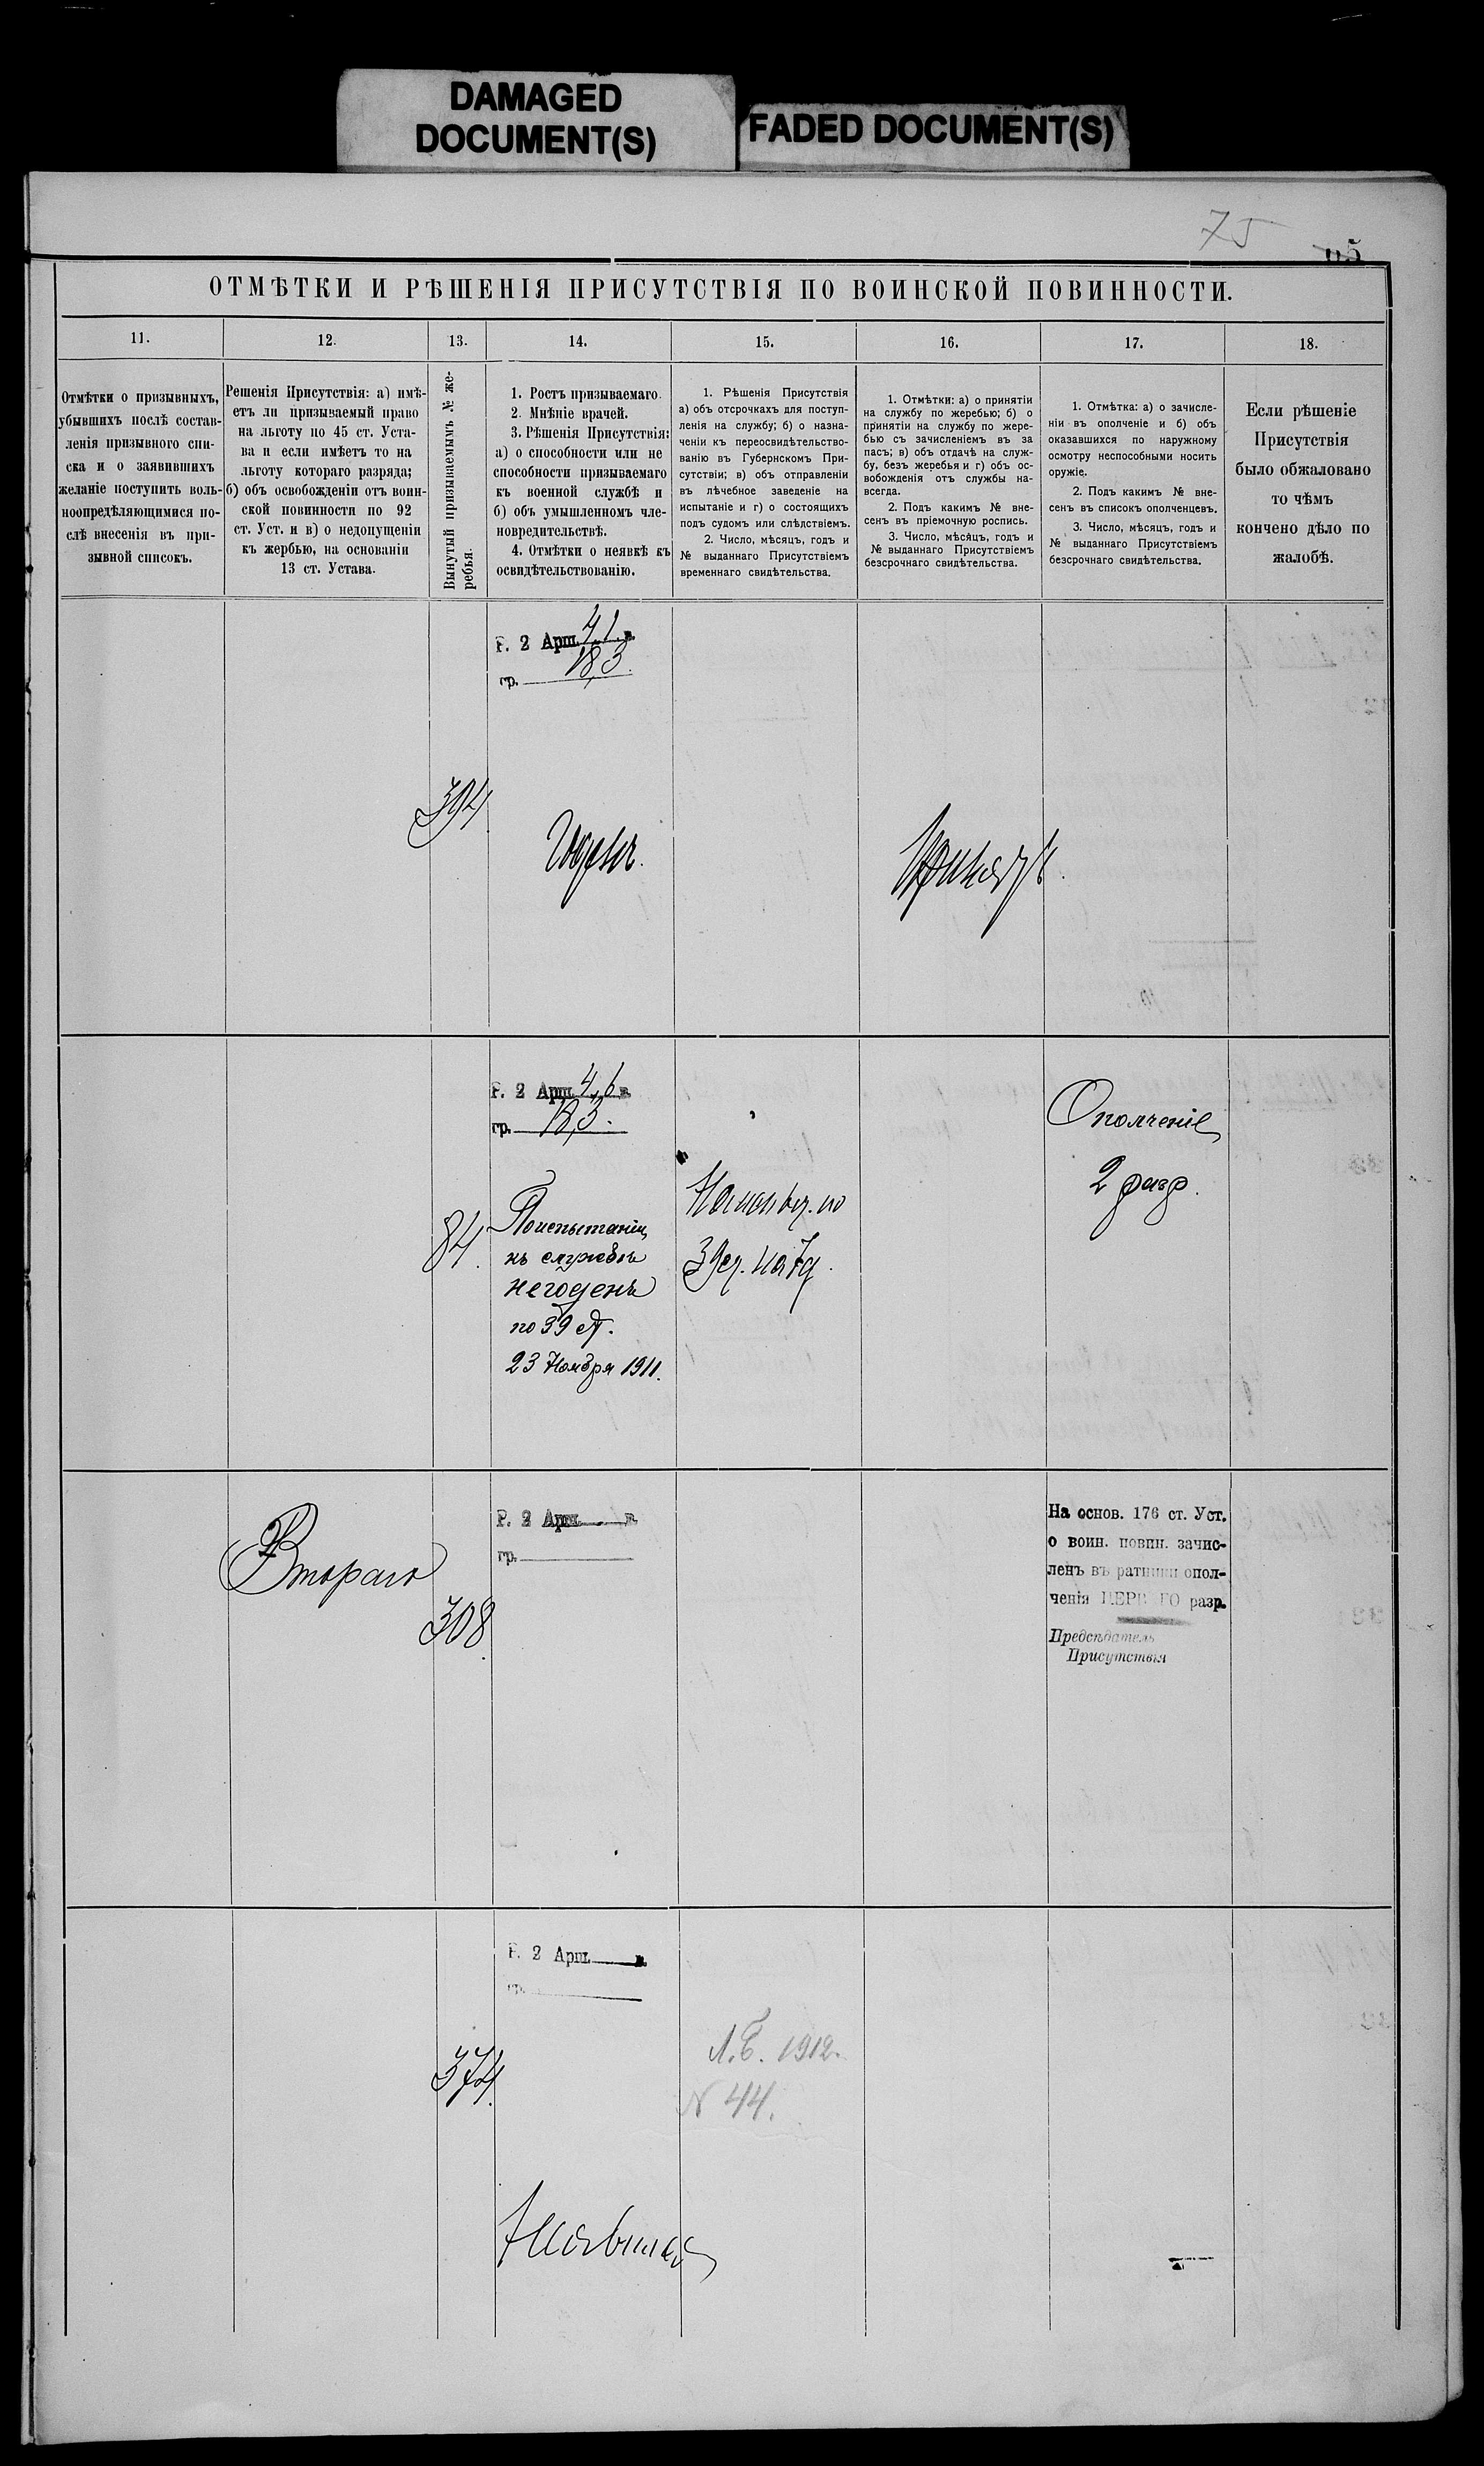 DAMAGED
DOCUMENT(S)
FADED DOCUMENT(S)
75
ОТМѢТКИ И РѢШЕНІЯ ПРИСУТСТВІЯ ПО ВОИНСКОЙ ПОВИННОСТИ.
11.
12.
13.
14.
15.
16.
17.
18.
Отмѣтки о призывныхъ,
убывшихъ послѣ состав-
ленія призывного спи-
ска и о заявившихъ
желаніе поступить воль-
ноопредѣляющимися по-
слѣ внесенія въ при-
зывной списокъ.
Решенія Присутствія: а) имѣ-
етъ ли призываемый право
на льготу по 45 ст. Уста-
ва и если имѣетъ то на
льготу котораго разряда;
б) объ освобожденіи отъ воин-
ской повинности по 92
ст. Уст. и в) о недопущеніи
къ жербью, на основаніи
13 ст. Устава.
Вынутый призываемымъ № же-
ребья.
1. Ростъ призываемаго.
2. Мнѣніе врачей.
3. Рѣшенія Присутствія:
а) о способности или не
способности призываемаго
къ военной службѣ и
б) объ умышленномъ чле-
новредительствѣ.
4. Отмѣтки о неявкѣ къ
освидѣтельствованію.
1. Рѣшенія Присутствія
а) объ отсрочкахъ для поступ-
ленія на службу; б) о назна-
ченіи къ переосвидѣтельство-
ванію въ Губернскомъ При-
сутствіи; в) объ отправленіи
въ лѣчебное заведеніе на
испытаніе и г) о состоящихъ
подъ судомъ или слѣдствіемъ.
2. Число, мѣсяцъ, годъ и
№ выданнаго Присутствіемъ
временнаго свидѣтельства.
1. Отмѣтки: а) о принятіи
на службу по жеребью; б) о
принятіи на службу по жере-
бью съ зачисленіемъ въ за
пасъ; в) объ отдачѣ на служ-
бу, безъ жеребья и г) объ ос-
вобожденія отъ службы на-
всегда.
2. Подъ какимъ № вне-
сенъ въ пріемочную роспись.
3. Число, мѣсяцъ, годъ и
№ выданнаго Присутствіемъ
безсрочнаго свидѣтельства.
1. Отмѣтка: а) о зачисле-
ніи въ ополченіе и б) объ
оказавшихся по наружному
осмотру неспособными носить
оружіе.
2. Подъ какимъ № вне-
сенъ въ списокъ ополченцевъ.
3. Число, мѣсяцъ, годъ и
№ выданнаго Присутствіемъ
безсрочнаго свидѣтельства.
Если рѣшеніе
Присутствія
было обжаловано
то чѣмъ
кончено дѣло по
жалобѣ.
Р. 2 Арш. 4,1 в.
гр. 18,3.
394
Годенъ.
Принятъ.
Р. 2 Арш. 4,6 в.
гр. 18,3.
84.
По испытаніи
къ службѣ
негоденъ
по 39 ст.
23 Ноября 1911.
Ополченіе
2 разр.
Втораго
308.
Р. 2 Арш. в.
гр.
На основ. 176 ст. Уст.
о воин. повин. зачис-
ленъ въ ратники опол-
ченія ПЕРВАГО разр.
Предсѣдатель
Присутствія
Р. 2 Арш. в.
гр.
374.
1912.
N 44.
Неявился